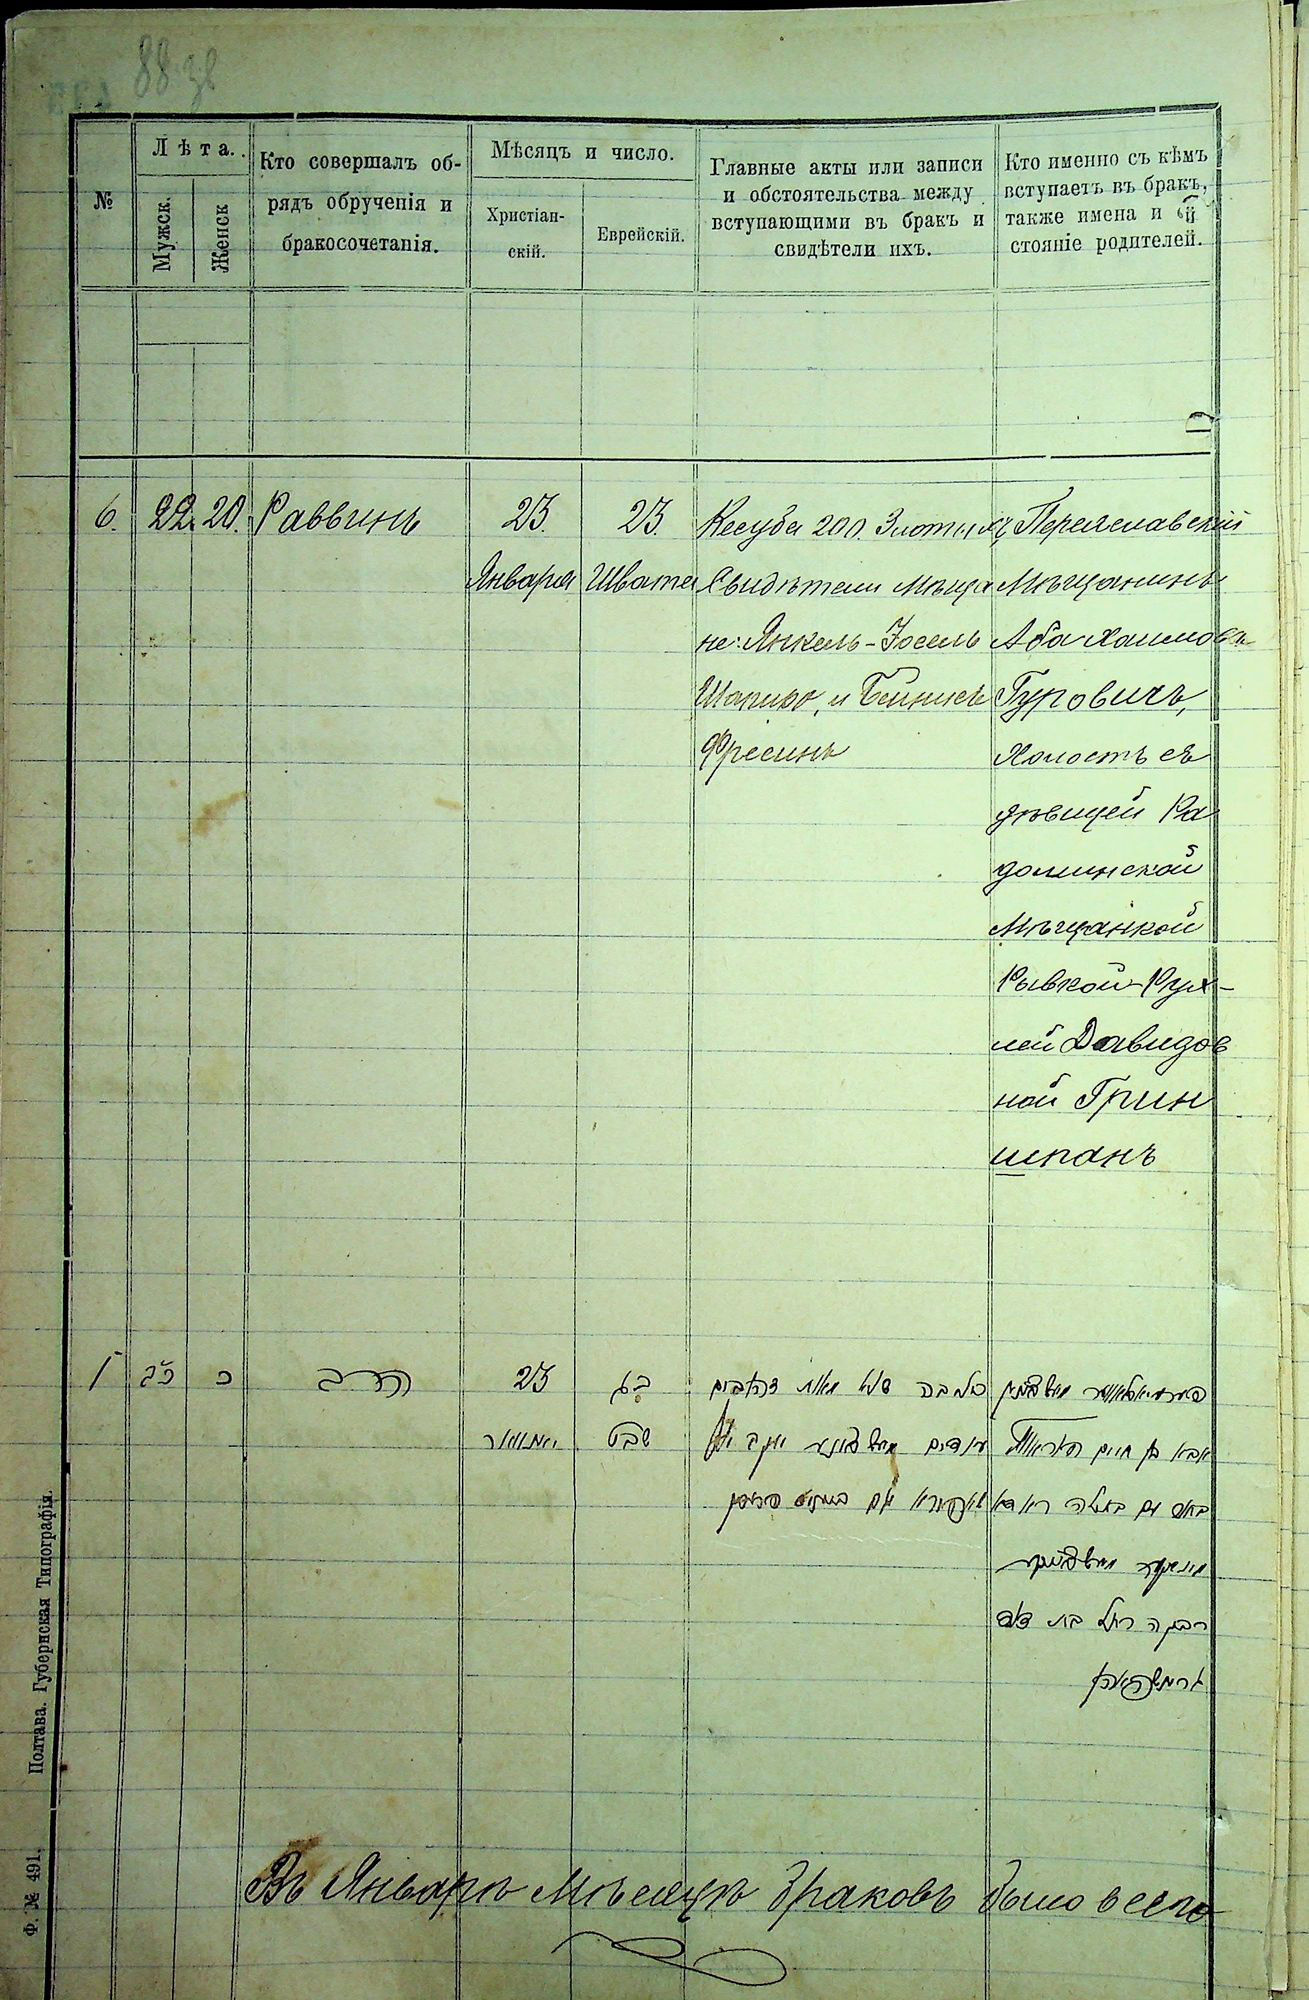 88 зв
№
Лѣта.
Мужск.
Женск
Кто совершалъ об-
рядъ обрученія и
бракосочетанія.
Мѣсяцъ и число.
Христіан-
скій.
Еврейскій.
Главные акты или записи
и обстоятельства между
вступающими въ бракъ и
свидѣтели ихъ.
Кто именно съ кѣмъ
вступаетъ въ бракъ,
также имена и
стояніе родителей.
6.
22.
20.
Раввинъ
23.
Января
23.
Швата
Кесуба 200. Злотыхъ
Свидѣтели Мѣща
не: Янкель-Іосель
Шапиро, и Бейнисъ
Фресинъ
Переяславскій
Мѣщанинъ
Аба Хаимовъ
Гуровичъ,
Холостъ съ
дѣвицей Ра
доминской
Мѣщанкой
Рывкой-Рух-
лей Давидов
ной Грин
шпанъ
כב
כ
הרב
23
יאנוואר
כג
שבט
כתובה שלו מאת זהובים
אבא בן חיים
רבקה רחל בת דוד
Въ Январѣ Мѣсяцѣ браковъ было всего
Полтава. Губернская Типографія.
Ф. № 491.